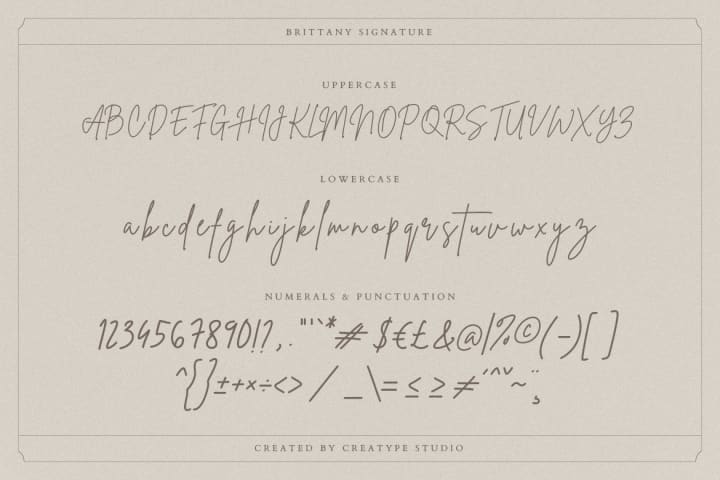 BRITTANY SIGNATURE
UPPERCASE
ABCDEFGHIJKLMNOPQRSTUVWXYZ
LOWERCASE
abcdefghijklmnopqrstuvwxyz
NUMERALS & PUNCTUATION
1234567890!?,."''`*#$€£&@|%©(-)[]
^{}±+×÷<>/_\=≤≥≠´ˆˇ~¨¸
CREATED BY CREATYPE STUDIO